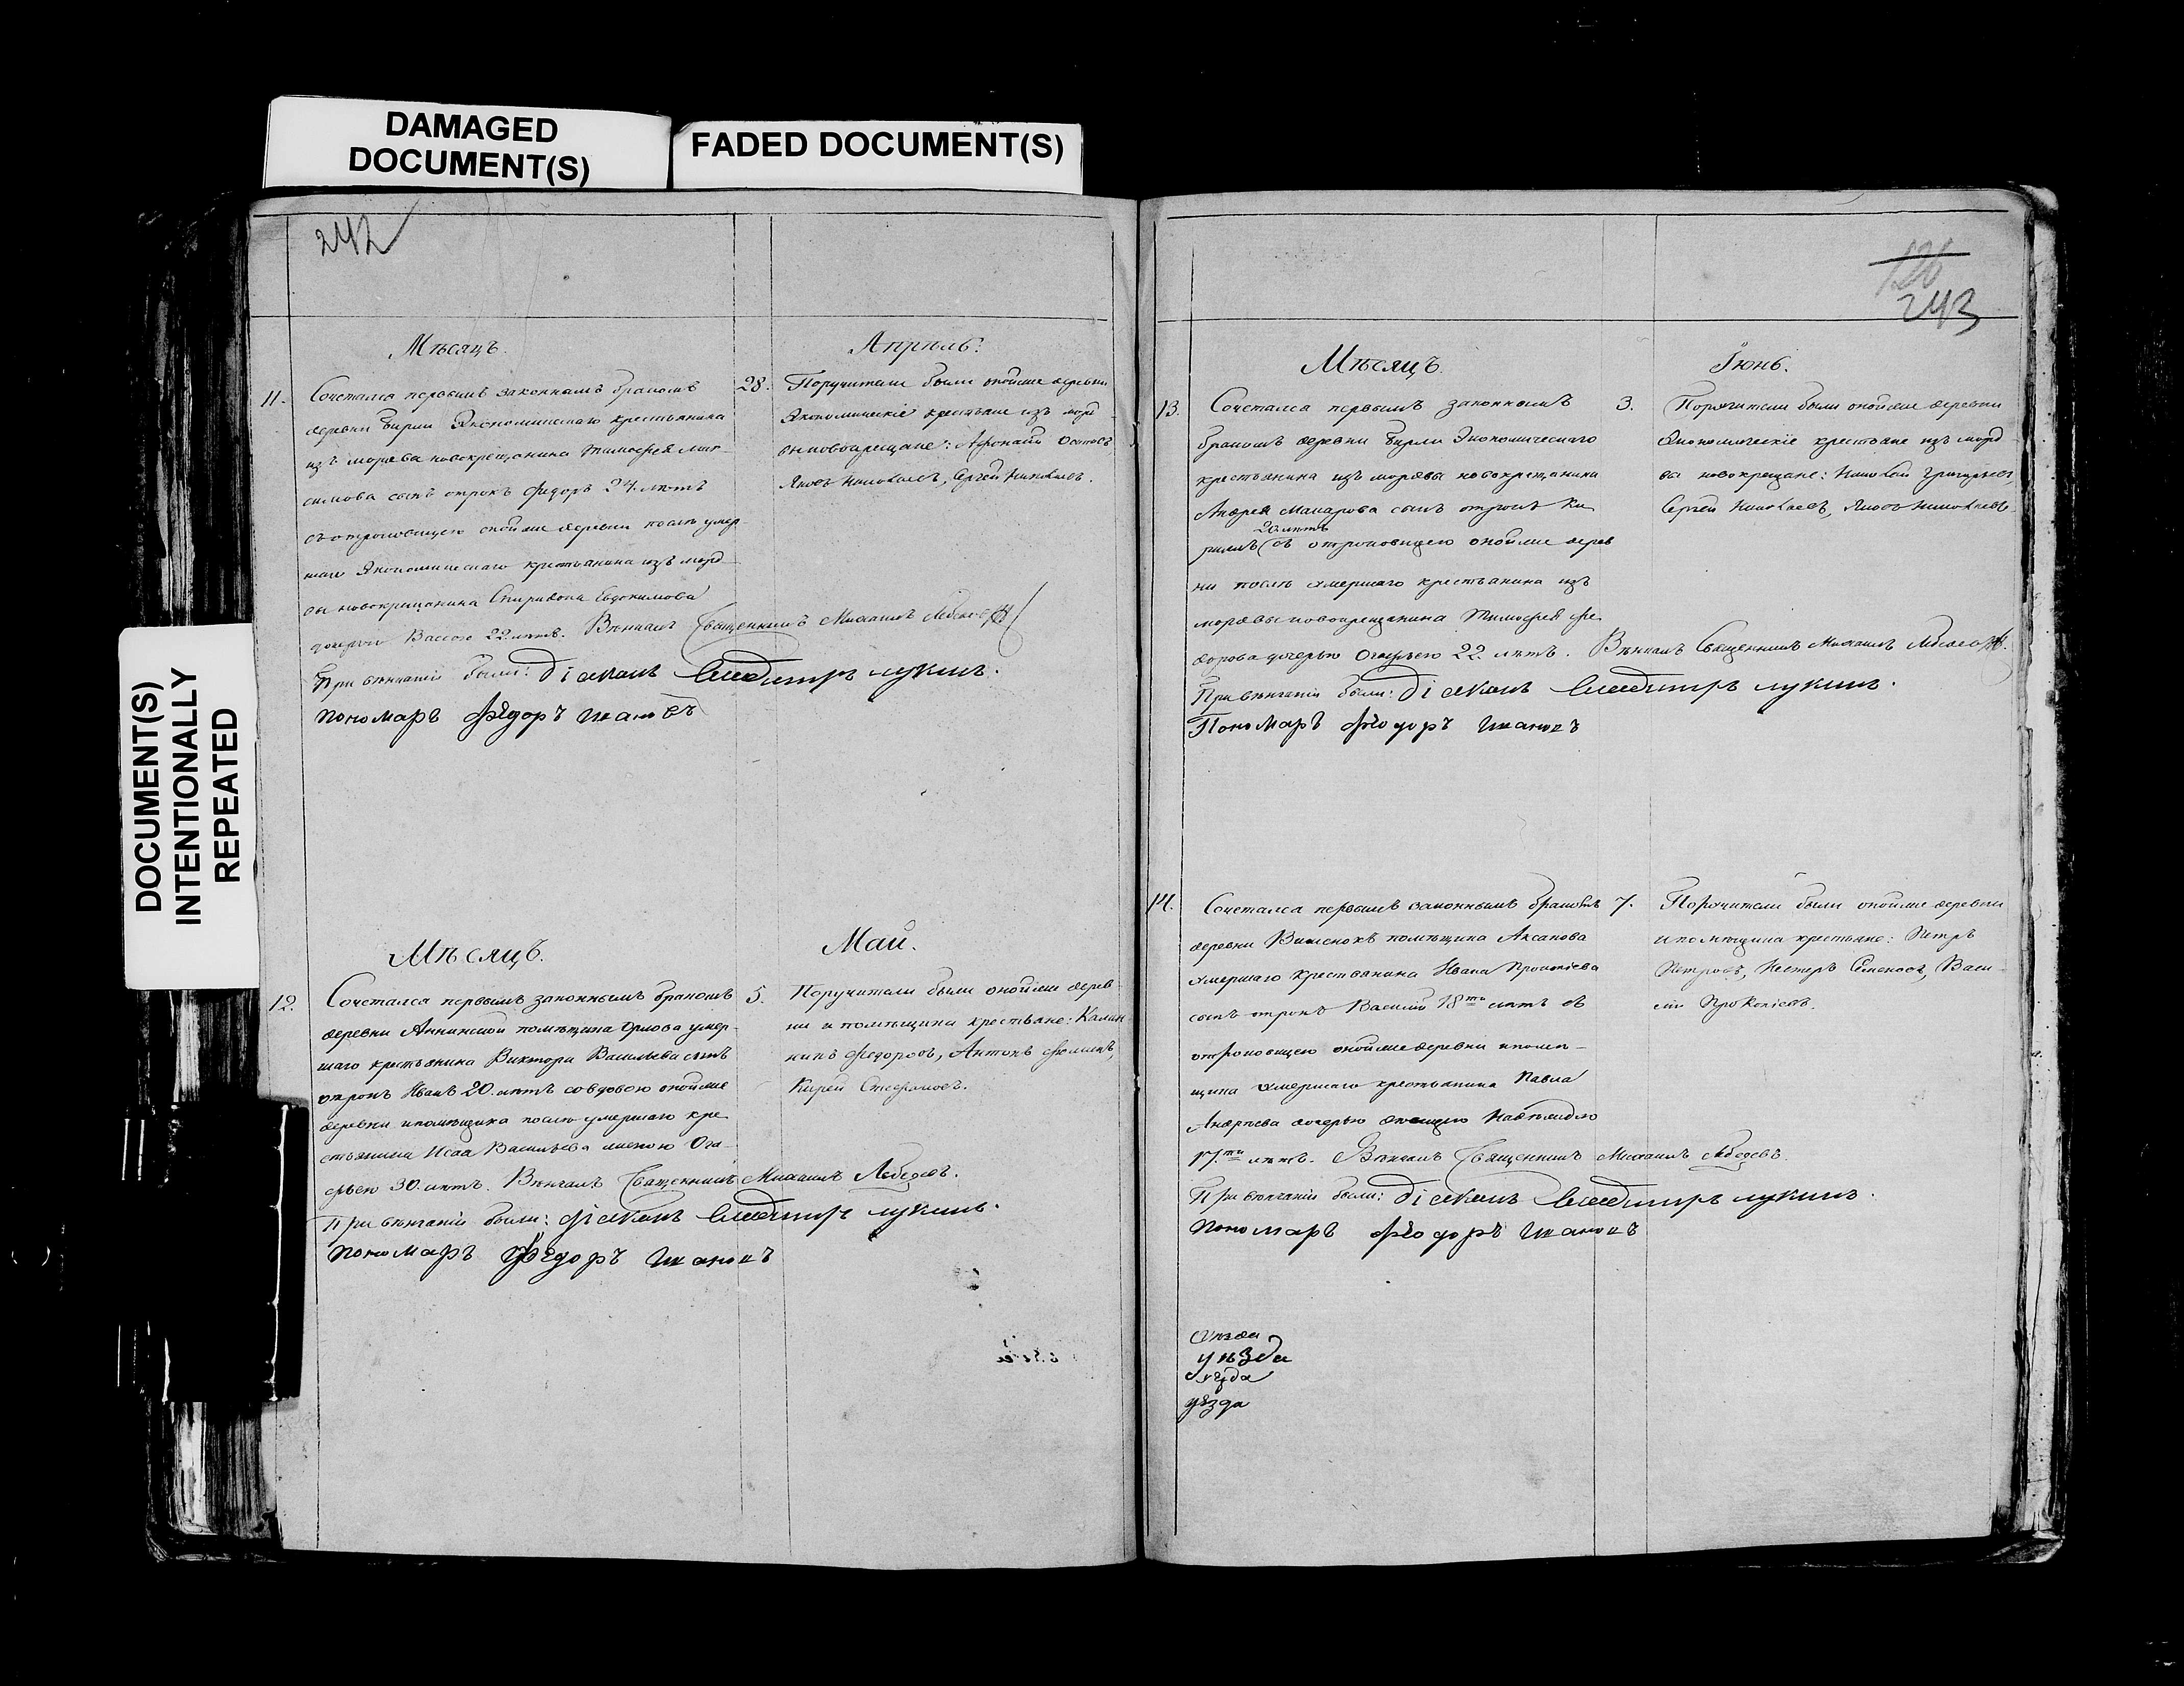 DAMAGED
DOCUMENT(S)
FADED DOCUMENT(S)
DOCUMENT(S)
INTENTIONALLY
REPEATED
242
Мѣсяцъ.
Апрѣль:
11.
Сочетался первымъ законнымъ бракомъ
деревни Бирли Экономическаго крестьянина
изъ мордвы новокрещенина Тимофея Мак-
симова сынъ отрокъ Федоръ 24. лѣтъ
съ отроковицею онойже деревни послѣ умер-
шаго Экономическаго крестьянина изъ морд
вы новокрещенина Спиридона Евдокимова
дочерью Вассою 22. лѣтъ. Вѣнчалъ Священникъ Михаилъ Лебедевъ
При вѣнчаніи были: діаконъ Владимиръ лукинъ.
пономаръ фѣдоръ ивановъ
28.
Поручители были онойже деревни
Экономическіе крестьяне изъ морд
вы новокрещане: Афонасій Осиповъ
Яковъ Николаевъ, Сергей Николаевъ.
Мѣсяцъ.
Май.
12.
Сочетался первымъ законнымъ бракомъ
деревни Аннинской помѣщика Орлова умер-
шаго крестьянина Виктора Васильева сынъ
отрокъ Иванъ 20. лѣтъ совдовою онойже
деревни ипомѣщика послѣ умершаго кре
стьянина Исаа Васильева женою Ога-
фьею 30. лѣтъ. Вѣнчалъ Священникъ Михаилъ Лебедевъ.
При вѣнчаніи были: діаконъ Владимиръ лукинъ.
пономаръ фѣдоръ ивановъ
5.
Поручители были онойже дерев
ни и помѣщика крестьяне: Калин
никъ Федоровъ, Антонъ
Кирей Стефановъ.
126
243
Мѣсяцъ.
Іюнь.
13.
Сочетался первымъ законнымъ
бракомъ деревни Бирли Экономическаго
крестьянина изъ мордвы новокрещенина
Андрея Макарова сынъ отрокъ Ки
20 лѣтъ
рилъ съ отроковицею онойже дерев
ни послѣ умершаго крестьянина изъ
мордвы новокрещенина Тимофея Фе
дорова дочерью Огафьею 22. лѣтъ. Вѣнчалъ Священникъ Михаилъ Лебедевъ.
При вѣнчаніи были: діаконъ Владимиръ лукинъ.
Пономаръ фѣодоръ ивановъ
3.
Поручители были онойже деревни
Экономическіе крестьяне изъ морд
вы новокрещане: Николай Григорьевъ,
Сергей Николаевъ, Яковъ Николаевъ
14.
Сочетался первымъ законнымъ бракомъ
деревни Вишенокъ помѣщика Аксакова
умершаго крестьянина Ивана Прокопіева
сынъ отрокъ Василій 18ти лѣтъ съ
отроковицею онойже деревни ипомѣ-
щика умершаго крестьянина Павла
Андреева дочерью
17.ти лѣтъ. Вѣнчалъ Священникъ Михаилъ Лебедевъ.
При вѣнчаніи были: діаконъ Владимиръ лукинъ.
пономаръ фѣодоръ ивановъ
7.
Поручители были онойже деревни
ипомѣщика крестьяне: Петръ
Петровъ, Нестеръ Семеновъ, Васи-
лій Прокопіевъ.
Уѣзда
уѣзда
уѣзда
уѣзда